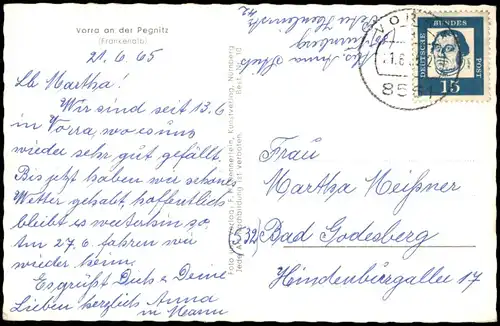 Vorra an der Pegnitz
(Frankenalb)
21. 6. 65
Lb. Martha!
Wir sind seit 13. 6
in Vorra, wo es uns
wieder sehr gut gefällt.
Bis jetzt haben wir schönes
Wetter gehabt, hoffentlich
bleibt es weiterhin so
Am 27. 6. fahren wir
wieder heim.
Es grüßt Dich u. Deine
Lieben herzlich Anna
u. Mann
Nürnberg
Jede Nachbildung ist verboten. Best.
DEUTSCHE BUNDES POST
15
Frau
Martha Meißner
(532) Bad Godesberg
Hindenburgallee 17